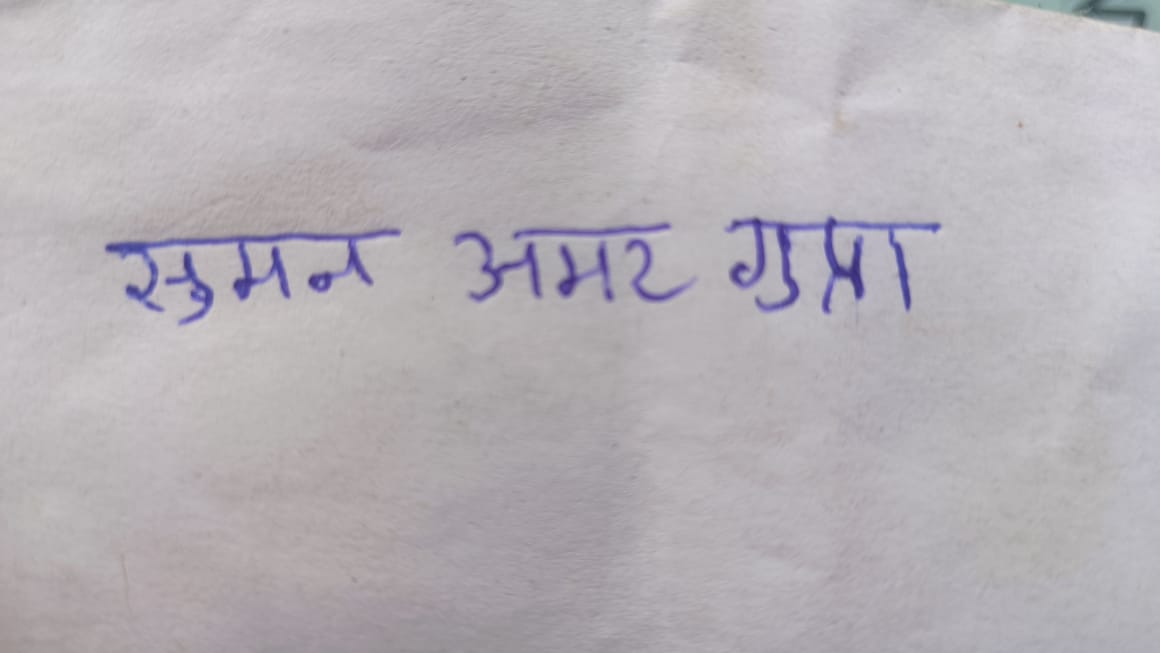 सुमन अमर गुप्ता